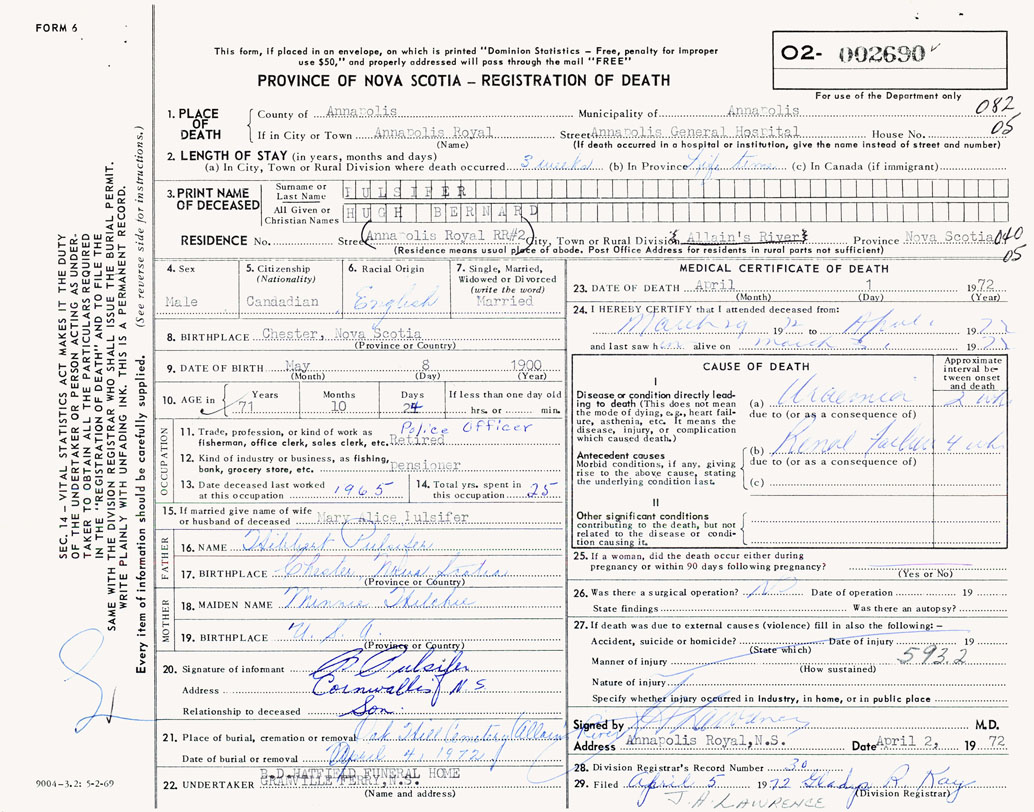 FORM 6
This form, if placed in an envelope, on which is printed "Dominion Statistics – Free, penalty for improper
use $50," and properly addressed will pass through the mail "FREE"
PROVINCE OF NOVA SCOTIA – REGISTRATION OF DEATH
O2- 002690
For use of the Department only
082
05
1. PLACE OF DEATH
County of Annapolis Municipality of Annapolis
If in City or Town Annapolis Royal Street Annapolis General Hospital House No.
(Name) (If death occurred in a hospital or institution, give the name instead of street and number)
2. LENGTH OF STAY (in years, months and days)
(a) In City, Town or Rural Division where death occurred 3 weeks (b) In Province Life time (c) In Canada (if immigrant)
3. PRINT NAME OF DECEASED
Surname or Last Name PULSIFER
All Given or Christian Names HUGH BERNARD
RESIDENCE No. Street (Annapolis Royal RR#2) City, Town or Rural Division Allain's River Province Nova Scotia 040
05
(Residence means usual place of abode. Post Office Address for residents in rural parts not sufficient)
4. Sex
Male
5. Citizenship
(Nationality)
Canadian
6. Racial Origin
English
7. Single, Married,
Widowed or Divorced
(write the word)
Married
8. BIRTHPLACE Chester, Nova Scotia
(Province or Country)
9. DATE OF BIRTH May 8 1900
(Month) (Day) (Year)
10. AGE in Years Months Days If less than one day old
71 10 24 hrs. or min.
OCCUPATION
11. Trade, profession, or kind of work as Police Officer
fisherman, office clerk, sales clerk, etc. Retired
12. Kind of industry or business, as fishing,
bank, grocery store, etc. pensioner
13. Date deceased last worked
at this occupation 1965
14. Total yrs. spent in
this occupation 25
15. If married give name of wife
or husband of deceased Mary Alice Pulsifer
FATHER
16. NAME Hibbert Pulsifer
17. BIRTHPLACE Chester Nova Scotia
(Province or Country)
MOTHER
18. MAIDEN NAME Minnie Hilchie
19. BIRTHPLACE U.S.A.
(Province or Country)
20. Signature of informant Pulsifer
Address Cornwallis N.S.
Relationship to deceased Son.
21. Place of burial, cremation or removal Oak Hill Cemetery (Allain River)
Date of burial or removal April 4, 1972
22. UNDERTAKER B.D. HATFIELD FUNERAL HOME
GRANVILLE FERRY, N.S.
(Name and address)
MEDICAL CERTIFICATE OF DEATH
23. DATE OF DEATH April 1 1972
(Month) (Day) (Year)
24. I HEREBY CERTIFY that I attended deceased from:
March 9 1972 to April 1 1972
and last saw him alive on March 1972
CAUSE OF DEATH
Approximate
interval be-
tween onset
and death
I
Disease or condition directly lead-
ing to death (This does not mean
the mode of dying, e.g., heart fail-
ure, asthenia, etc. It means the
disease, injury, or complication
which caused death.)
(a) Uraemia 2 wks
due to (or as a consequence of)
Antecedent causes
Morbid conditions, if any, giving
rise to the above cause, stating
the underlying condition last.
(b) Renal Failure 4 wks
due to (or as a consequence of)
(c)
II
Other significant conditions
contributing to the death, but not
related to the disease or condi-
tion causing it.
25. If a woman, did the death occur either during
pregnancy or within 90 days following pregnancy?
(Yes or No)
26. Was there a surgical operation? No Date of operation 19
State findings Was there an autopsy?
27. If death was due to external causes (violence) fill in also the following: –
Accident, suicide or homicide? Date of injury 19
(State which)
593.2
Manner of injury
(How sustained)
Nature of injury
Specify whether injury occurred in Industry, in home, or in public place
Signed by M.D.
Address Annapolis Royal, N.S. Date April 2, 1972
28. Division Registrar's Record Number 30
29. Filed April 5 1972 Gladys R. Kay
(Division Registrar)
J. A. LAWRENCE
SEC. 14 – VITAL STATISTICS ACT MAKES IT THE DUTY
OF THE UNDERTAKER OR PERSON ACTING AS UNDER-
TAKER TO OBTAIN ALL THE PARTICULARS REQUIRED
IN THE "REGISTRATION OF DEATH" AND TO FILE THE
SAME WITH THE DIVISION REGISTRAR WHO SHALL ISSUE THE BURIAL PERMIT.
WRITE PLAINLY WITH UNFADING INK. THIS IS A PERMANENT RECORD.
Every item of information should be carefully supplied. (See reverse side for instructions.)
9004-3.2: 5-2-69